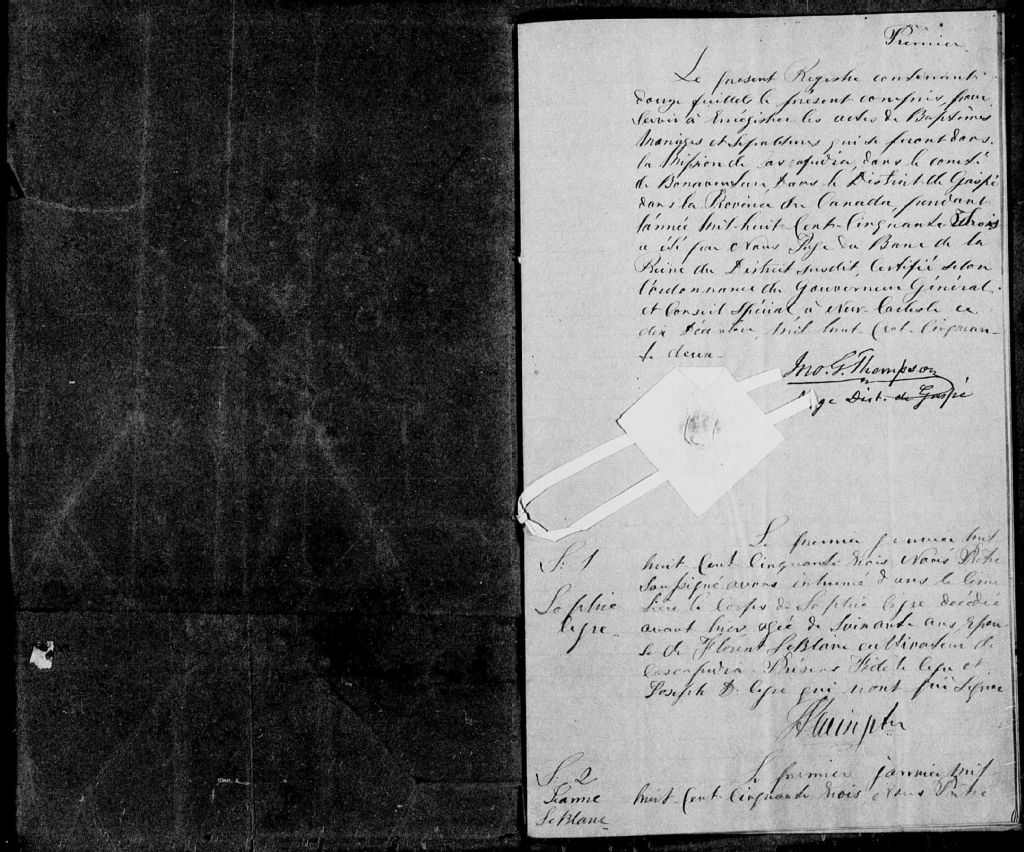 Premier
Le present Registre contenant
douze feuillets le présent compris, pour
servir à Enrégistrer les actes de Baptêmes
Mariages et Sépultures qui se feront dans
la Mission de Cascapédia, dans le comté
de Bonaventure Dans le District de Gaspé
dans la Province du Canada, pendant
l'année Mil-huit-Cent-Cinquante Trois
a été par Nous Juge du Banc de la
Reine du District susdit, Certifié selon
l'ordonnance du Gouverneur Général
et Conseil Spécial à New Carlisle ce
dix Décembre, Mil huit Cent Cinquan-
te deux-
Jno. G. Thompson
Juge Dist. de Gaspé
S. 1
Sophie
Cyre-
Le premier janvier mil
huit-Cent-Cinquante trois Nous Prêtre
Soussigné avons inhumé dans le Cime
tière le corps de Sophie Cyre décédée
avant hier agée de Soixante ans, Epou
se de Florent LeBlanc cultivateur de
Cascapédia- Présens Fidele Cyre et
Joseph D. Cyre qui n'ont pu Signer
S. 2
Jeanne
LeBlanc
Le premier janvier mil
huit-Cent-Cinquante trois Nous Prêtre